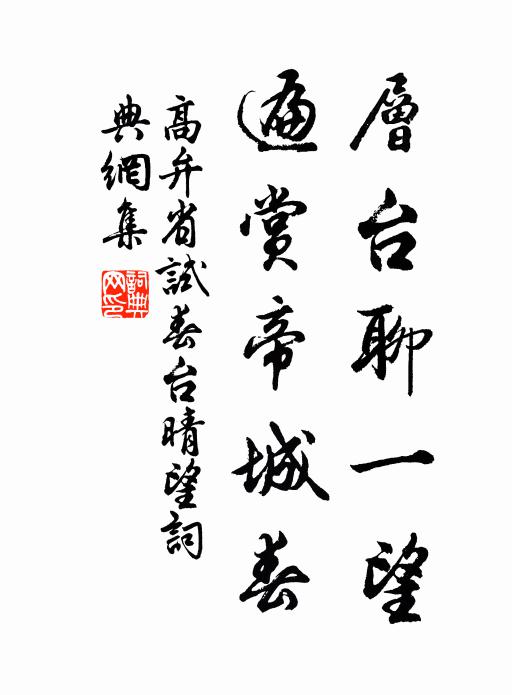 層台聊一望
遍賞帝城春
高弁省試春台晴望詞
典網集
詞典
网印